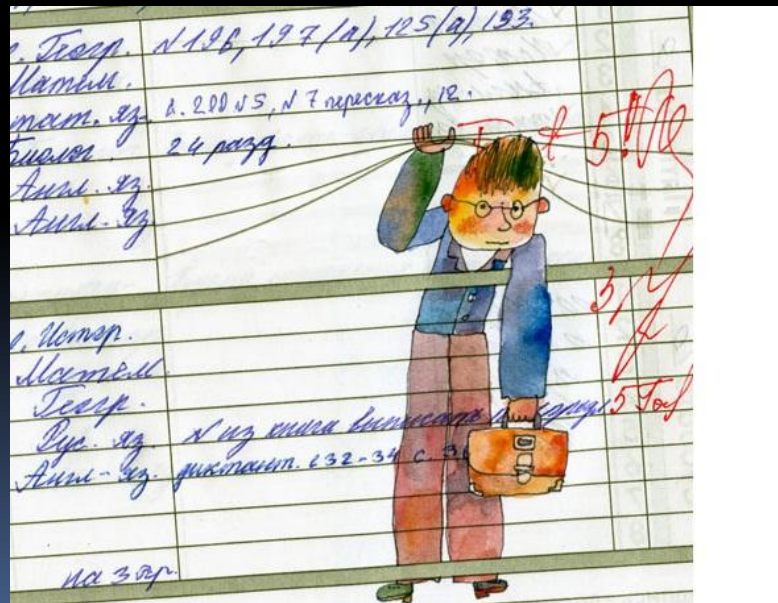 Геогр. N 196, 197 (а), 125 (а), 193.
Матем.
тат. яз. с. 200 N5, N 7 пересказ., 12.
Биолог. 24 разд.
Англ. яз.
Англ-яз
5
3/
Истор.
Матем
Геогр.
Рус. яз. N из книги выписать 5
Англ-яз. диктант. с 32-34 с. 3
на 3 тр.